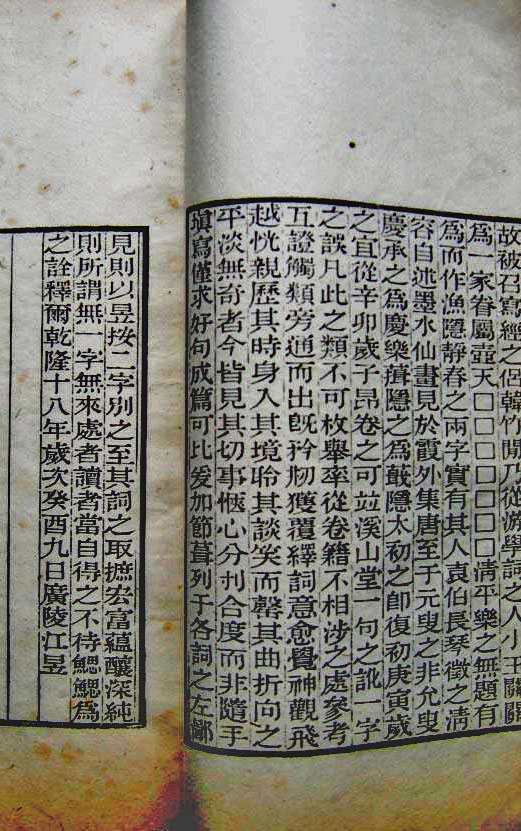 故被召寫經之侶韓竹閒乃從游學詞之人小王關關
爲一家眷屬壺天□□□□□□清平樂之無題有
爲而作漁隱靜春之兩字實有其人袁伯長琴徵之淸
容自述墨水仙畫見於霞外集唐至于元叟之非允叟
慶承之爲慶樂葺隱之爲蕺隱太初之卽復初庚寅歲
之宜從辛卯歲子昂卷之可竝溪山堂一句之訛一字
之誤凡此之類不可枚舉率從卷籍不相涉之處參考
互證觸類旁通而出旣矜朷獲覆繹詞意愈覺神觀飛
越恍親歷其時身入其境聆其談笑而罄其曲折向之
平淡無奇者今皆見其切事愜心分刌合度而非隨手
塡寫僅求好句成篇可比爰加節葺列于各詞之左鄙
見則以昱按二字別之至其詞之取摭宏富蘊釀深純
則所謂無一字無來處者讀者當自得之不待鰓鰓爲
之詮釋爾乾隆十八年歲次癸酉九日廣陵江昱